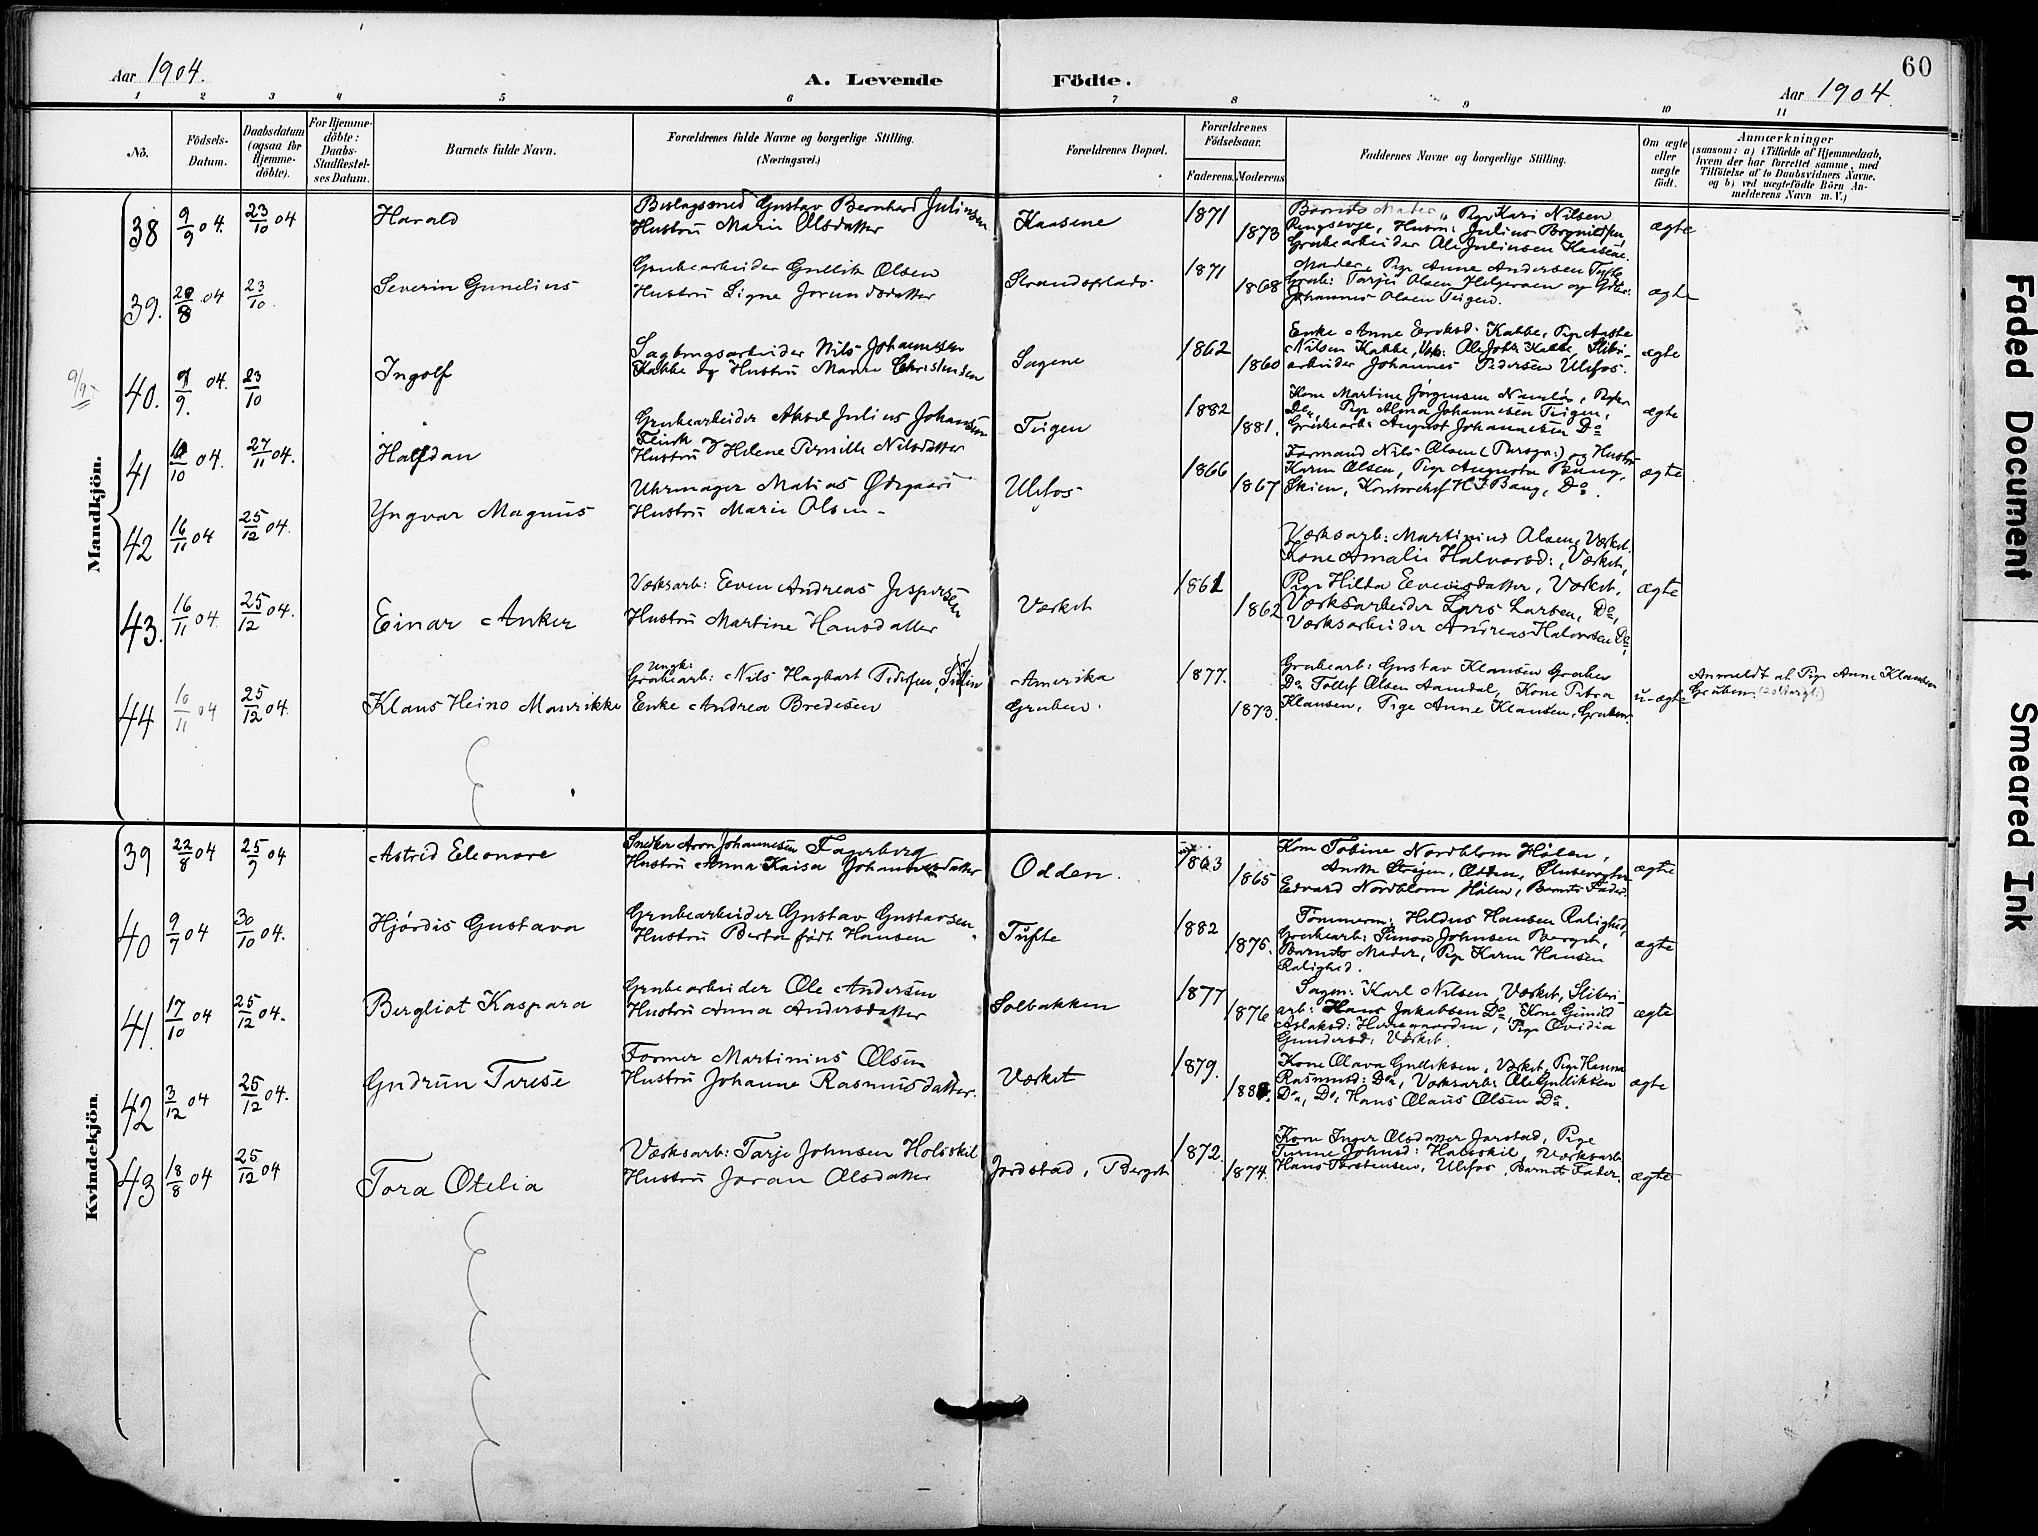 60
Aar 1904.
A. Levende Födte.
Aar 1904.
1 2 3 4 5 6 7 8 9 10 11
No.
Födsels-
Datum.
Daabsdatum
(ogsaa for
Hjemme-
döbte).
For Hjemme-
döbte:
Daabs-
Stadfæstel-
ses Datum.
Barnets fulde Navn.
Forældrenes fulde Navne og borgerlige Stilling.
(Næringsvei.)
Forældrenes Bopæl.
Forældrenes
Födselsaar.
Faderens. Moderens.
Faddernes Navne og borgerlige Stilling.
Om ægte
eller
uægte
födt.
Anmærkninger
(saasom: a) i Tilfælde af Hjemmedaab,
hvem der har forrettet samme, med
Tilföielse af to Daabsvidners Navne.
og b) ved uægtefödte Börn An-
melderens Navn m. V.)
Mandkjön.
38 9/9 04. 23/10 04 Harald
Beslagsmed Gustav Bernhard Julinsen
Hustru Marie Olsdatter
Kaasene
1871
1873
Barnets Moder, Pige Kari Nilsen
Ringsevje, Hustru: Julius Brynildsen,
Grubearbeider Ole Julinsen Kaasene.
ægte
39. 28/8 04 23/10 Severin Gunelius
Grubearbeider Gullik Olsen
Hustru Signe Jorundsdatter
Strandsplads.
1871
1868
Moder, Pige Anne Andersen Tufte
Grub: Tarjei Olsen Helgeroen og Grba:
Johannes Olsen Teigen.
ægte
9/9
40. 9/9. 04. 23/10 Ingolf
Sagbrugsarbeider Nils Johannessen
Kabbe og Hustru Maren Christensen
Sagene
1862
1860
Enke Anne Ersksd. Kabbe, Pige Aaste
Nilsen Kabbe, Ole Johs Kabbe, Sliberi-
arbeider Johannes Pedersen Ulefos.
ægte
41 10/10 04. 27/11 04. Halfdan
Grubearbeider Aksel Julius Johansen
Flink
Hustru Helene Pernille Nilsdatter
Teigen
1882
1881.
Kone Martine Jörgensen Namlös,
Do, Pige Alma Johannesen Teigen,
Grubearb: August Johannesen Do
ægte
42 16/11 04 25/12 04. Yngvar Magnus
Uhrmager Matias Ødegaard
Hustru Marie Olsen -
Ulefos
1866
1867
Formand Nils Olsen (Porsgr:) og Hustru
Karen Olsen, Pige Augusta Bang,
Skien, Kontorchef H J Bang, Do.
ægte
43. 16/11 04. 25/12 04. Einar Anker
Værksarb: Even Andreas Jespersen
Hustru Martine Hansdatter
Værket
1861
1862
Værksarb: Martinius Olsen, Værket.
Kone Amalie Halvorsd:, Værket,
Pige Hilda Evensdatter, Værket,
Værksarbeider Lars Larsen, Do,
Værksarbeider Andreas Halvorsen Do,
ægte
44 10/11 04 25/12 04. Klaus Heino Maurikke
Ungk:
Grubearb: Nils Hagbart Pedersen,
Enke Andrea Bredesen
Amerika
Gruben.
1877.
1873.
Grubearb: Gustav Klausen Gruben
Do Tollef Olsen Aamdal, Kone Petra
Klausen, Pige Anne Klausen, Gruben.
u-ægte
Anmeldt af Pige Anne Klausen
Gruben
Kvindekjön.
39 22/8 04 25/9 04 Astrid Eleonore
Snedker Aron Johannesen Fagerberg
Hustru Anna Kaisa Johannesdatter
Odden.
1863
1865
Kone Tobine Nordblom Holen,
Anette Strøjen, Odden,
Edvard Nordblom Holen, Barnets Fader.
ægte
40 9/7 04 30/10 04. Hjördis Gustava
Grubearbeider Gustav Gustavsen,
Hustru Berta født Hansen
Tufte
1882
1875.
Tømmerm: Hildus Hansen Ralighed,
Grubearb: Simon Johnsen Berget,
Barnets Moder, Pige Karen Hansen
Ralighed.
ægte
41. 17/10 04 25/12 04. Bergliot Kaspara
Grubearbeider Ole Andersen
Hustru Anna Andersdatter
Solbakken
1877
1876
Sagm: Karl Nilsen, Værket, Sliberi-
arb: Hans Jakobsen Do, Kone Gunild
Aslaksd: Herregaarden, Pige Ovidia
Gundersd: Værket.
ægte
42 3/12 04 25/12 04. Gudrun Terese
Former Martinius Olsen
Hustru Johanne Rasmusdatter.
Værket
1879.
Kone Olava Gulliksen, Værket, Pige Hanna
Rasmusd: Do, Værksarb: Ole Gulliksen
Do, Do, Hans Olaus Olsen Do.
ægte
43 18/8 04 25/12 04 Tora Otelia
Værksarb: Tarje Johnsen Holsskil
Hustru Joran Olsdatter
Jordstad, Berget
1872.
1874.
Kone Inger Olsdatter Jarstad, Pige
Turine Johnsd: Halsskil, Værksarb
Hans Torstensen, Ulefos, Barnets Fader.
ægte
Faded Document
Smeared Ink